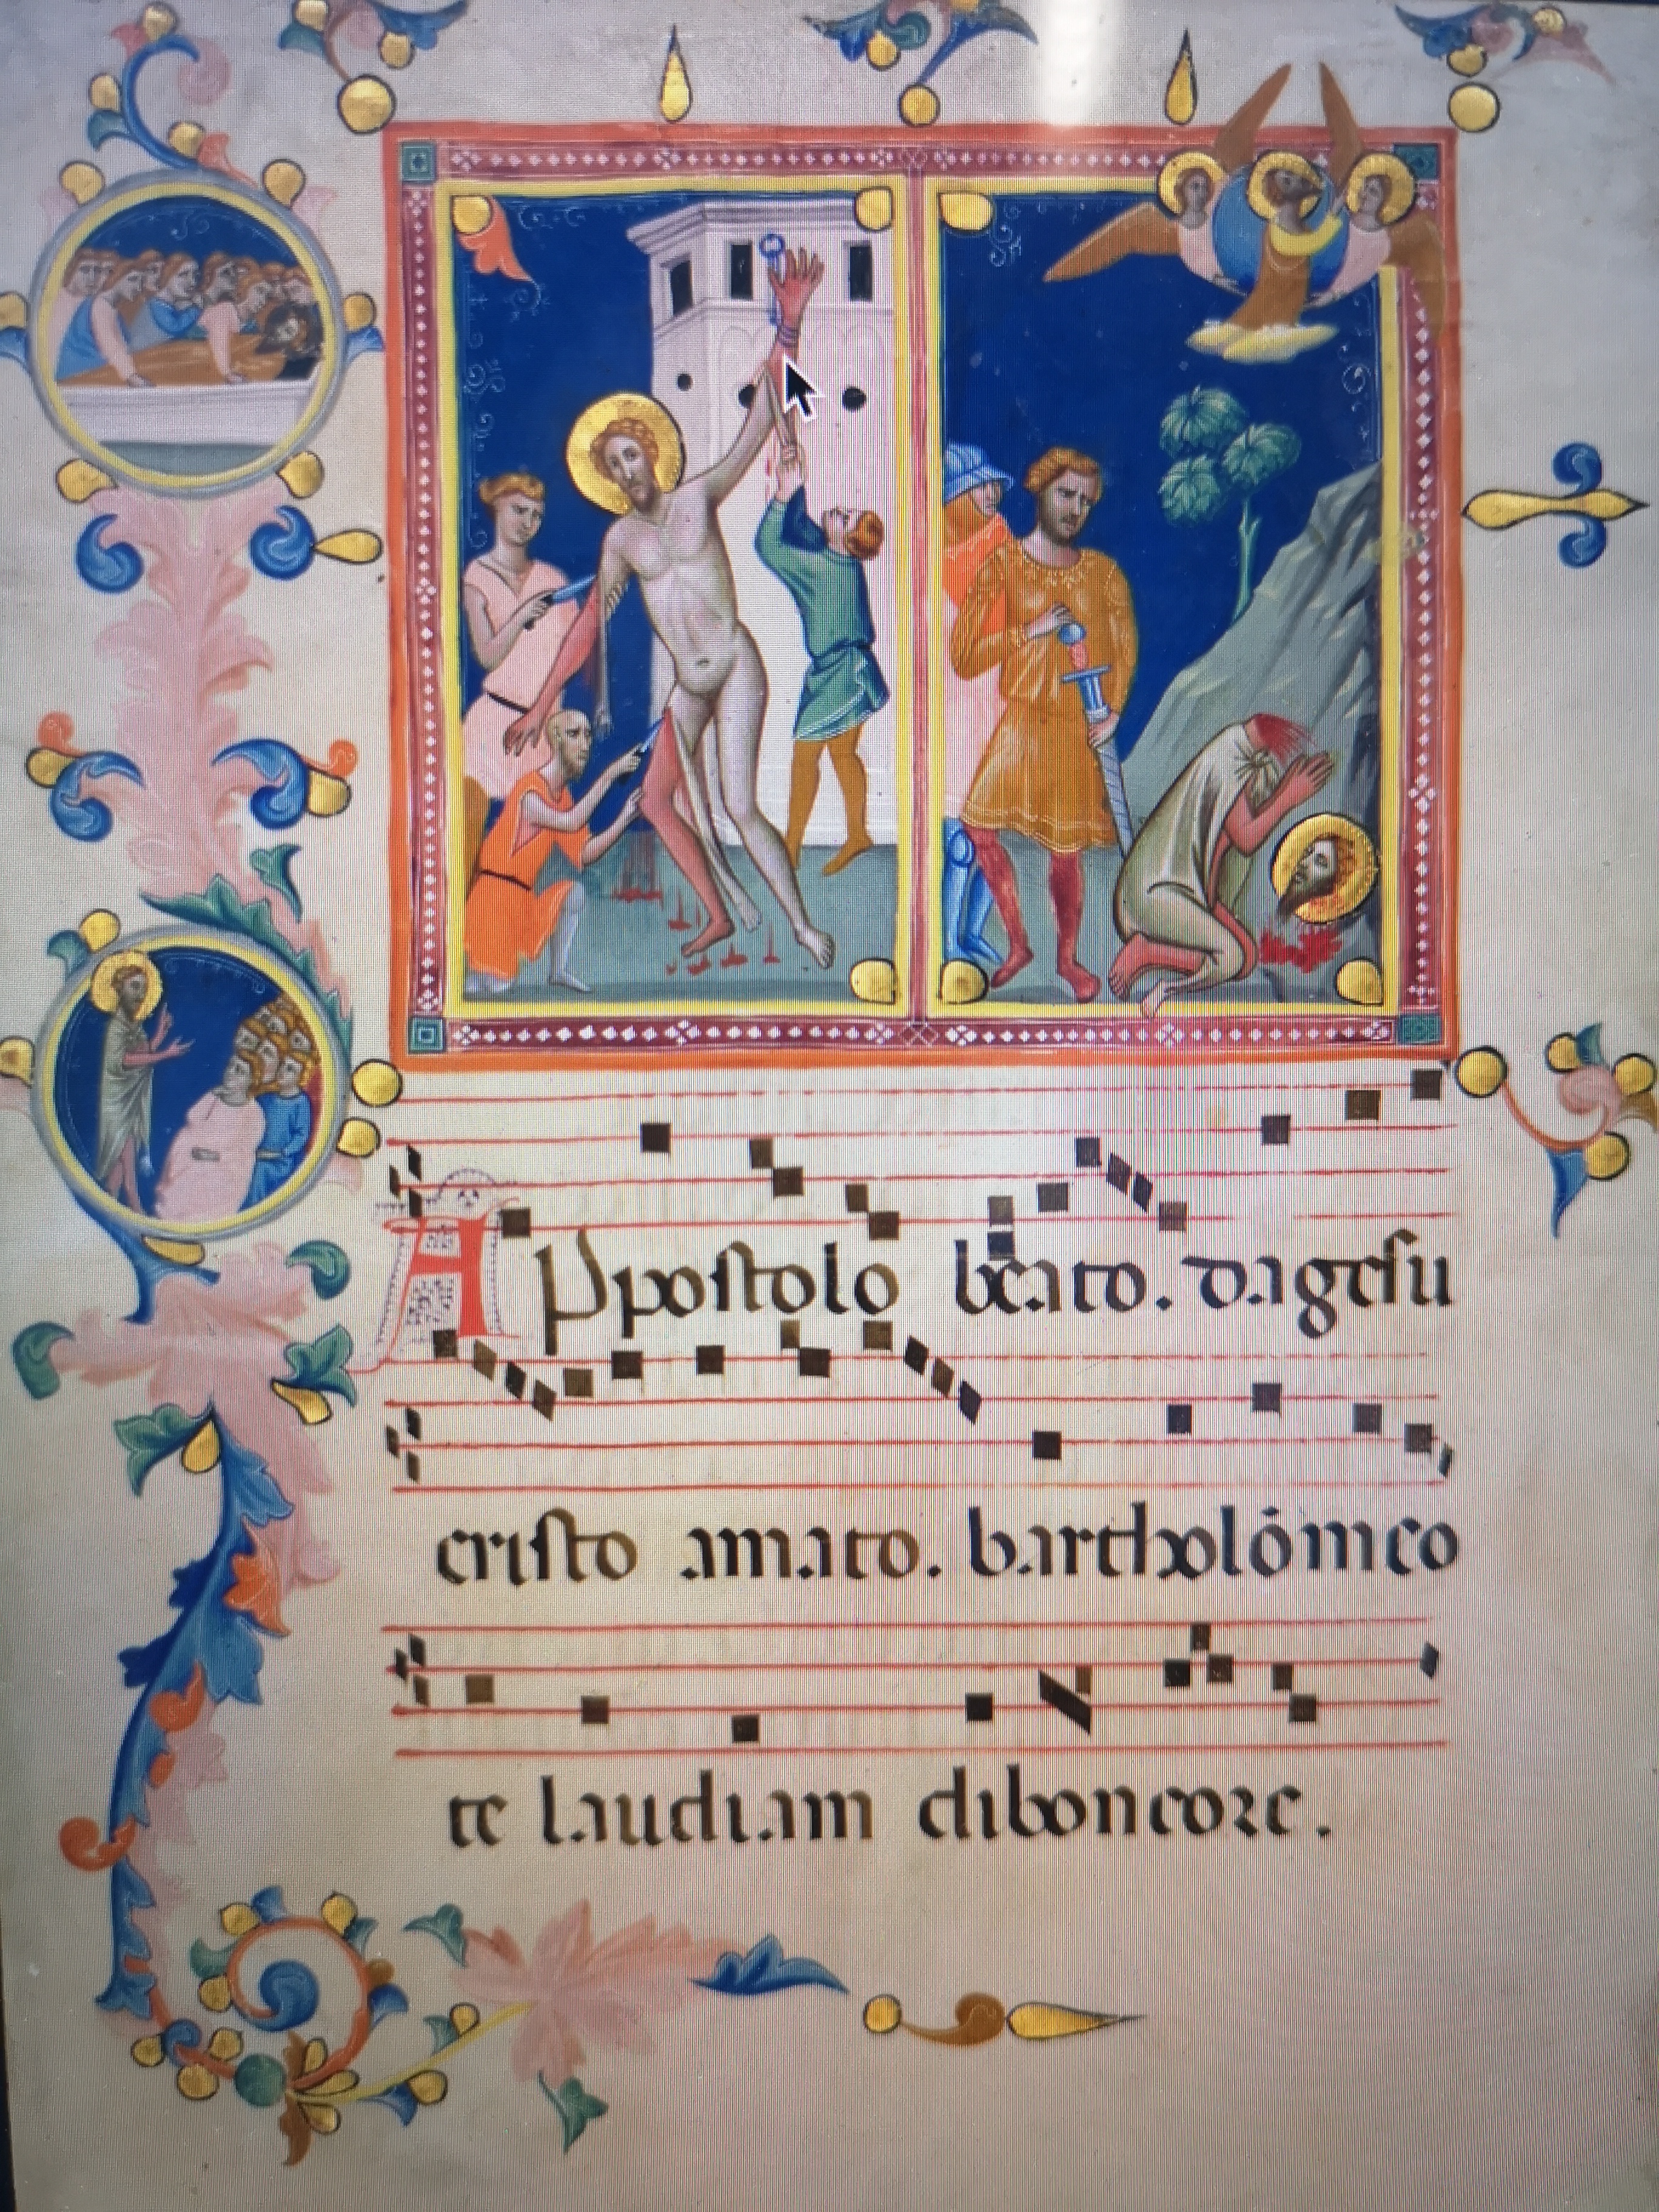 APpoſtolo beato. dageſu
criſto amato. bartholómeo
te laudiam diboncore.